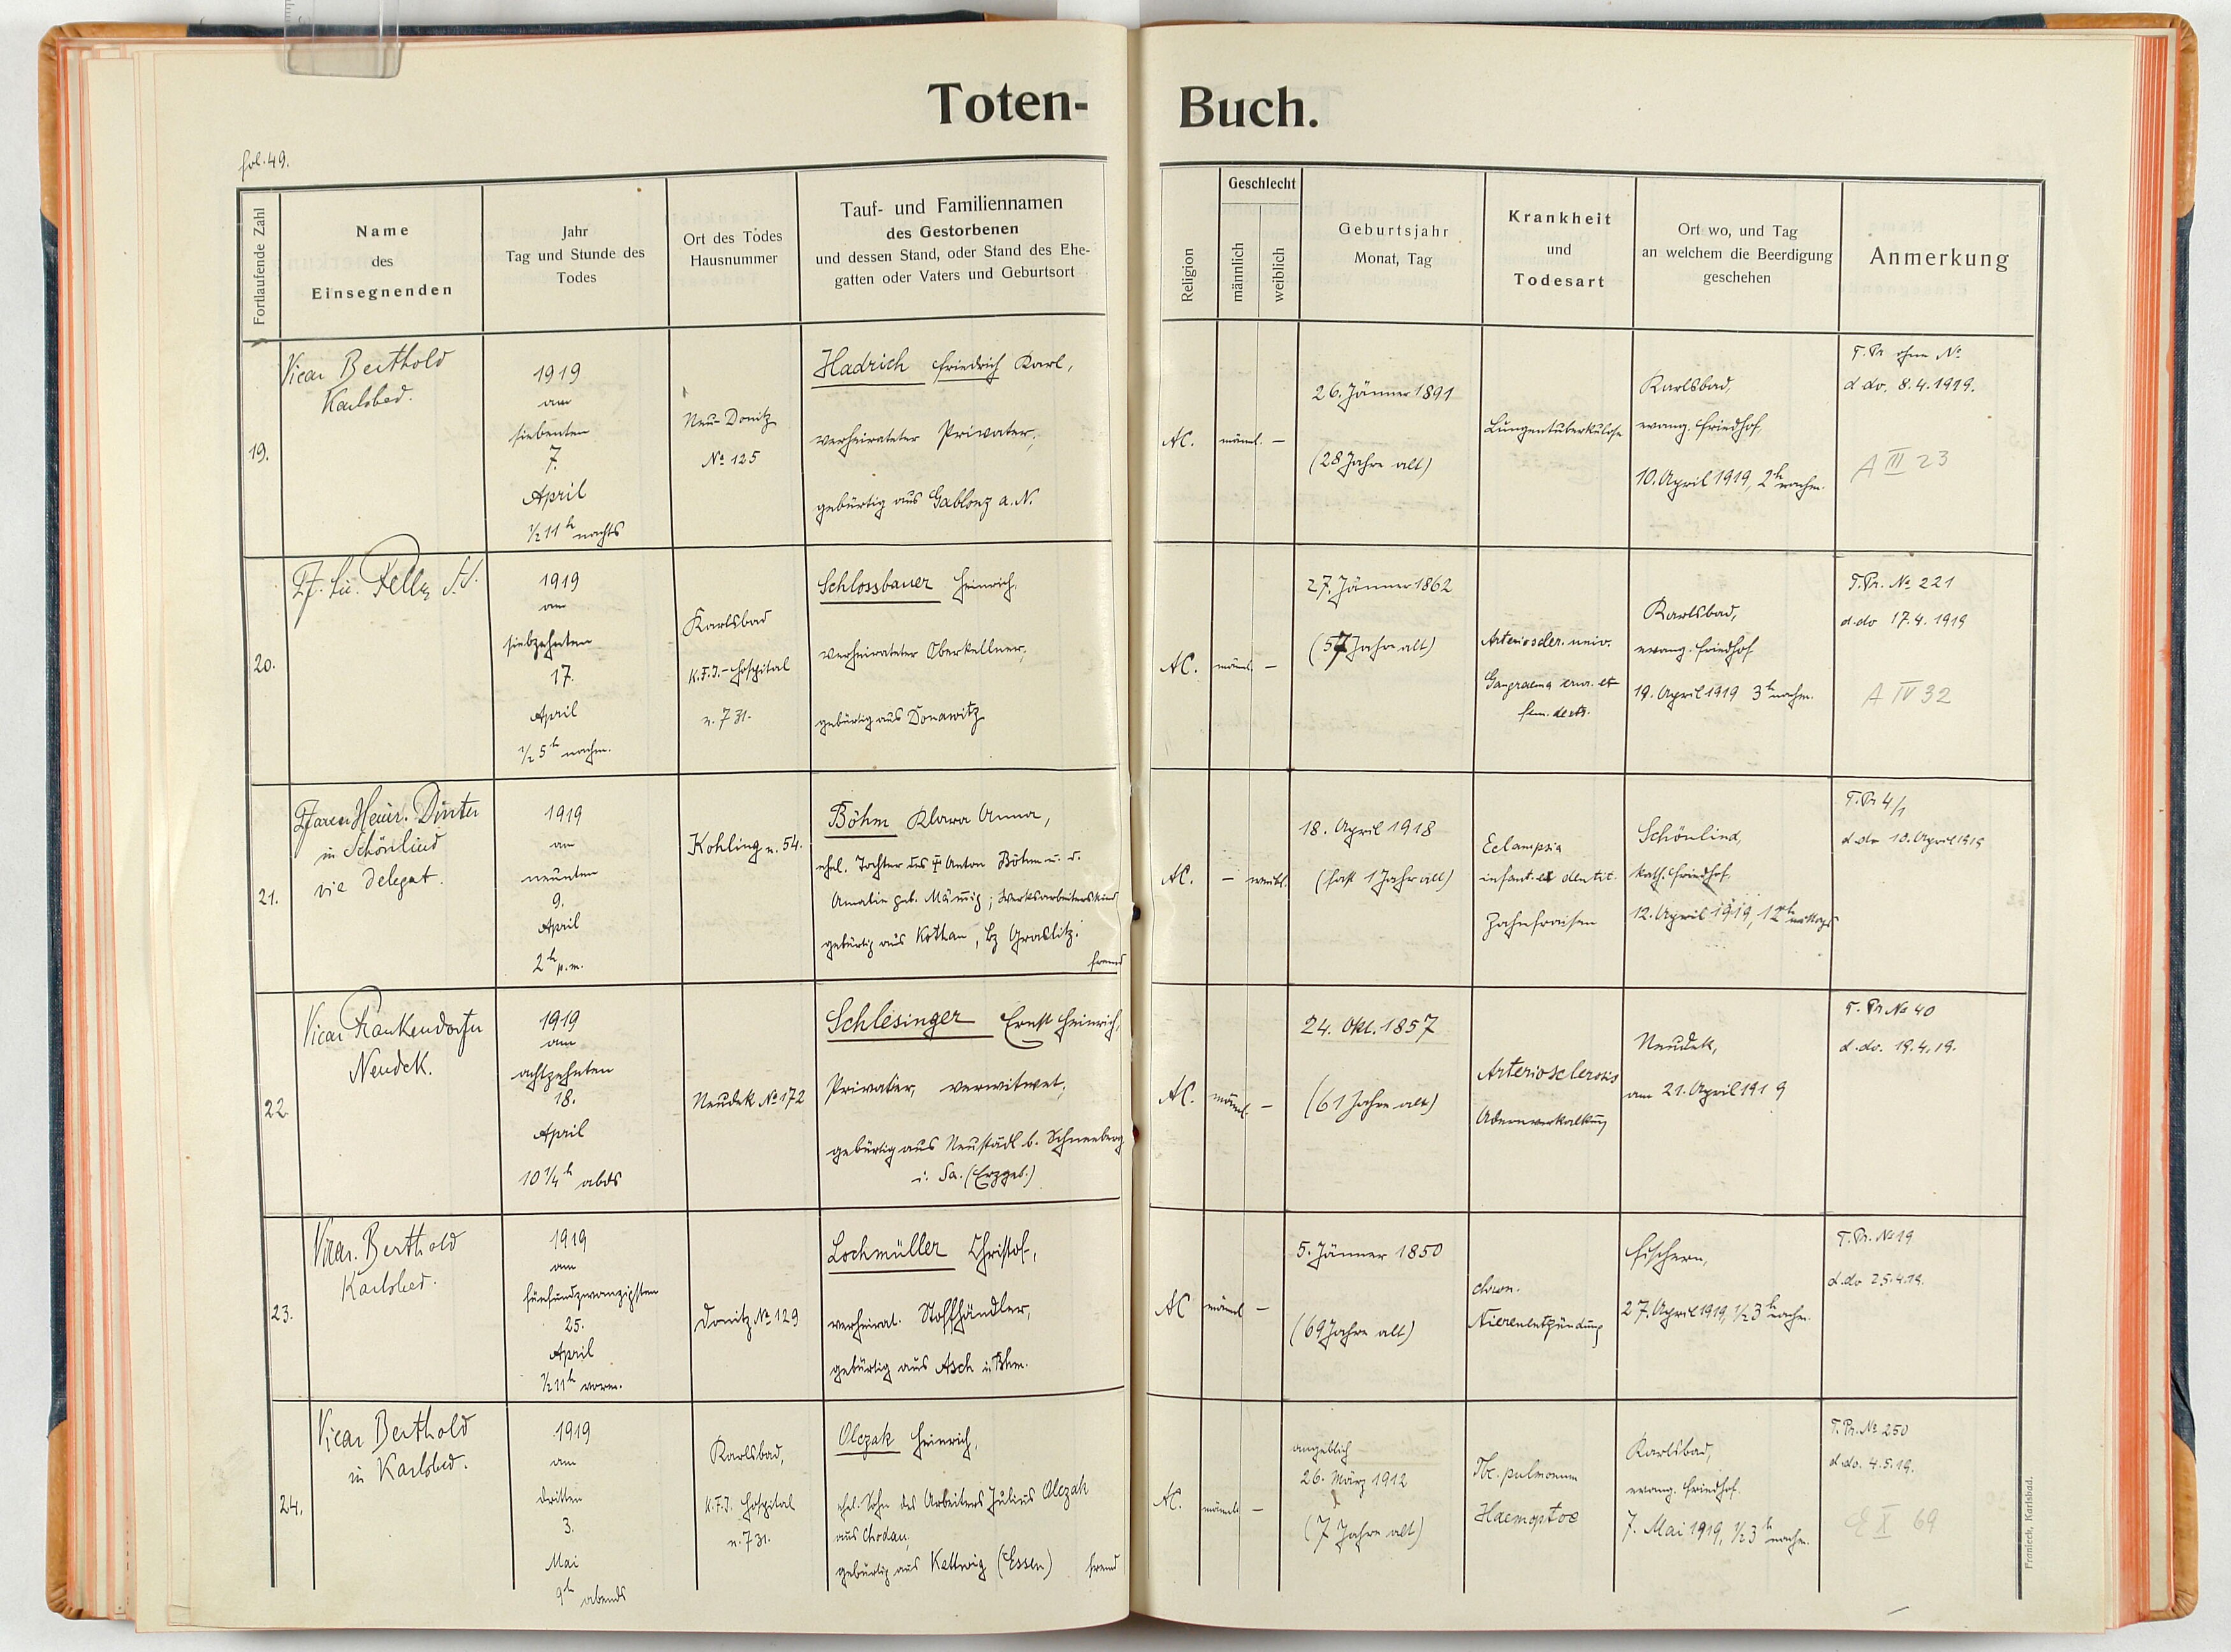 Toten-
Buch.
fol. 49.
Fortlaufende Zahl
Name
des
Einsegnenden
Jahr
Tag und Stunde des
Todes
Ort des Todes
Hausnummer
Tauf- und Familiennamen
des Gestorbenen
und dessen Stand, oder Stand des Ehe-
gatten oder Vaters und Geburtsort
Religion
Geschlecht
männlich
weiblich
Geburtsjahr
Monat, Tag
Krankheit
und
Todesart
Ort wo, und Tag
an welchem die Beerdigung
geschehen
Anmerkung
19.
Vicar Berthold
Karlsbad.
1919
am
siebenten
7.
April
1/2 11 h nachts
Neu-Donitz
No 125
Hadrich Friedrich Karl,
verheirateter Privater,
gebürtig aus Gablonz a. N.
AC.
männl.
—
26. Jänner 1891
(28 Jahre alt)
Lungentuberkulose
Karlsbad,
evang. Friedhof,
10. April 1919, 2 h nachm.
T. Pr. ohne No
d.do. 8.4.1919.
A III 23
20.
1919
am
siebzehnten
17.
April
1/2 5 h nachm.
Karlsbad
K.F.J.-Hospital
n. 731.
Schlossbauer Heinrich,
verheirateter Oberkellner,
gebürtig aus Donawitz
AC.
männl.
—
27. Jänner 1862
(57 Jahre alt)
Arterioscler. univ.
Gangraena crur. et
fem. dextr.
Karlsbad,
evang. Friedhof
19. April 1919 3 h nachm.
T. Pr. No 221
d.do 17.4.1919
A IV 32
21.
Pfarrer Heinr. Dinter
in Schönlind
vic delegat.
1919
am
neunten
9.
April
2 h p.m.
Kohling n. 54.
Böhm Klara Anna,
ehel. Tochter des † Anton Böhm u. d.
Amalie geb. ; Werksarbeiterskind
gebürtig aus Rothau, Bz Graslitz.
fremd
AC.
—
weibl.
18. April 1918
(fast 1 Jahr alt)
Eclampsia
infant. ex dentit.
Zahnfraisen
Schönlind,
kath. Friedhof
12. April 1919, 12 h mittags
T. Pr 4/1
d.do 10. April 1919
22.
Vicar Frankendorfer
Neudek.
1919
am
achtzehnten
18.
April
10 1/4 h abds
Neudek No 172
Schlesinger Ernst Heinrich,
Privatier, verwitwet,
gebürtig aus Neustädl b. Schneeberg
i. Sa. (Erzgeb.)
AC.
männl.
—
24. Okt. 1857
(61 Jahre alt)
Arteriosclerosis
Adernverkalkung
Neudek,
am 21. April 1919
T. Pr. No 40
d.do. 19.4.19.
23.
Vicar. Berthold
Karlsbad.
1919
am
fünfundzwanzigsten
25.
April
1/2 11 h vorm.
Donitz No 129
Lochmüller Christof,
verheirat. Stoffhändler,
gebürtig aus Asch i. Bhm.
AC
männl
—
5. Jänner 1850
(69 Jahre alt)
chron.
Nierenentzündung
Fischern,
27. April 1919, 1/2 3 h nachm.
T. Pr. No 19
d.do 25.4.19.
24.
Vicar Berthold
in Karlsbad.
1919
am
dritten
3.
Mai
9 h abends
Karlsbad,
K.F.J. Hospital
n. 731.
Olczak Heinrich,
ehel. Sohn des Arbeiters Julius Olczak
aus Chodau,
gebürtig aus Kettwig (Essen) fremd
AC.
männl.
—
angeblich
26. März 1912
(7 Jahre alt)
Tbc. pulmonum
Haemoptoe
Karlsbad,
evang. Friedhof.
7. Mai 1919, 1/2 3 h nachm.
T. Pr. No 250
d.do. 4.5.19.
X 69
Franieck, Karlsbad.